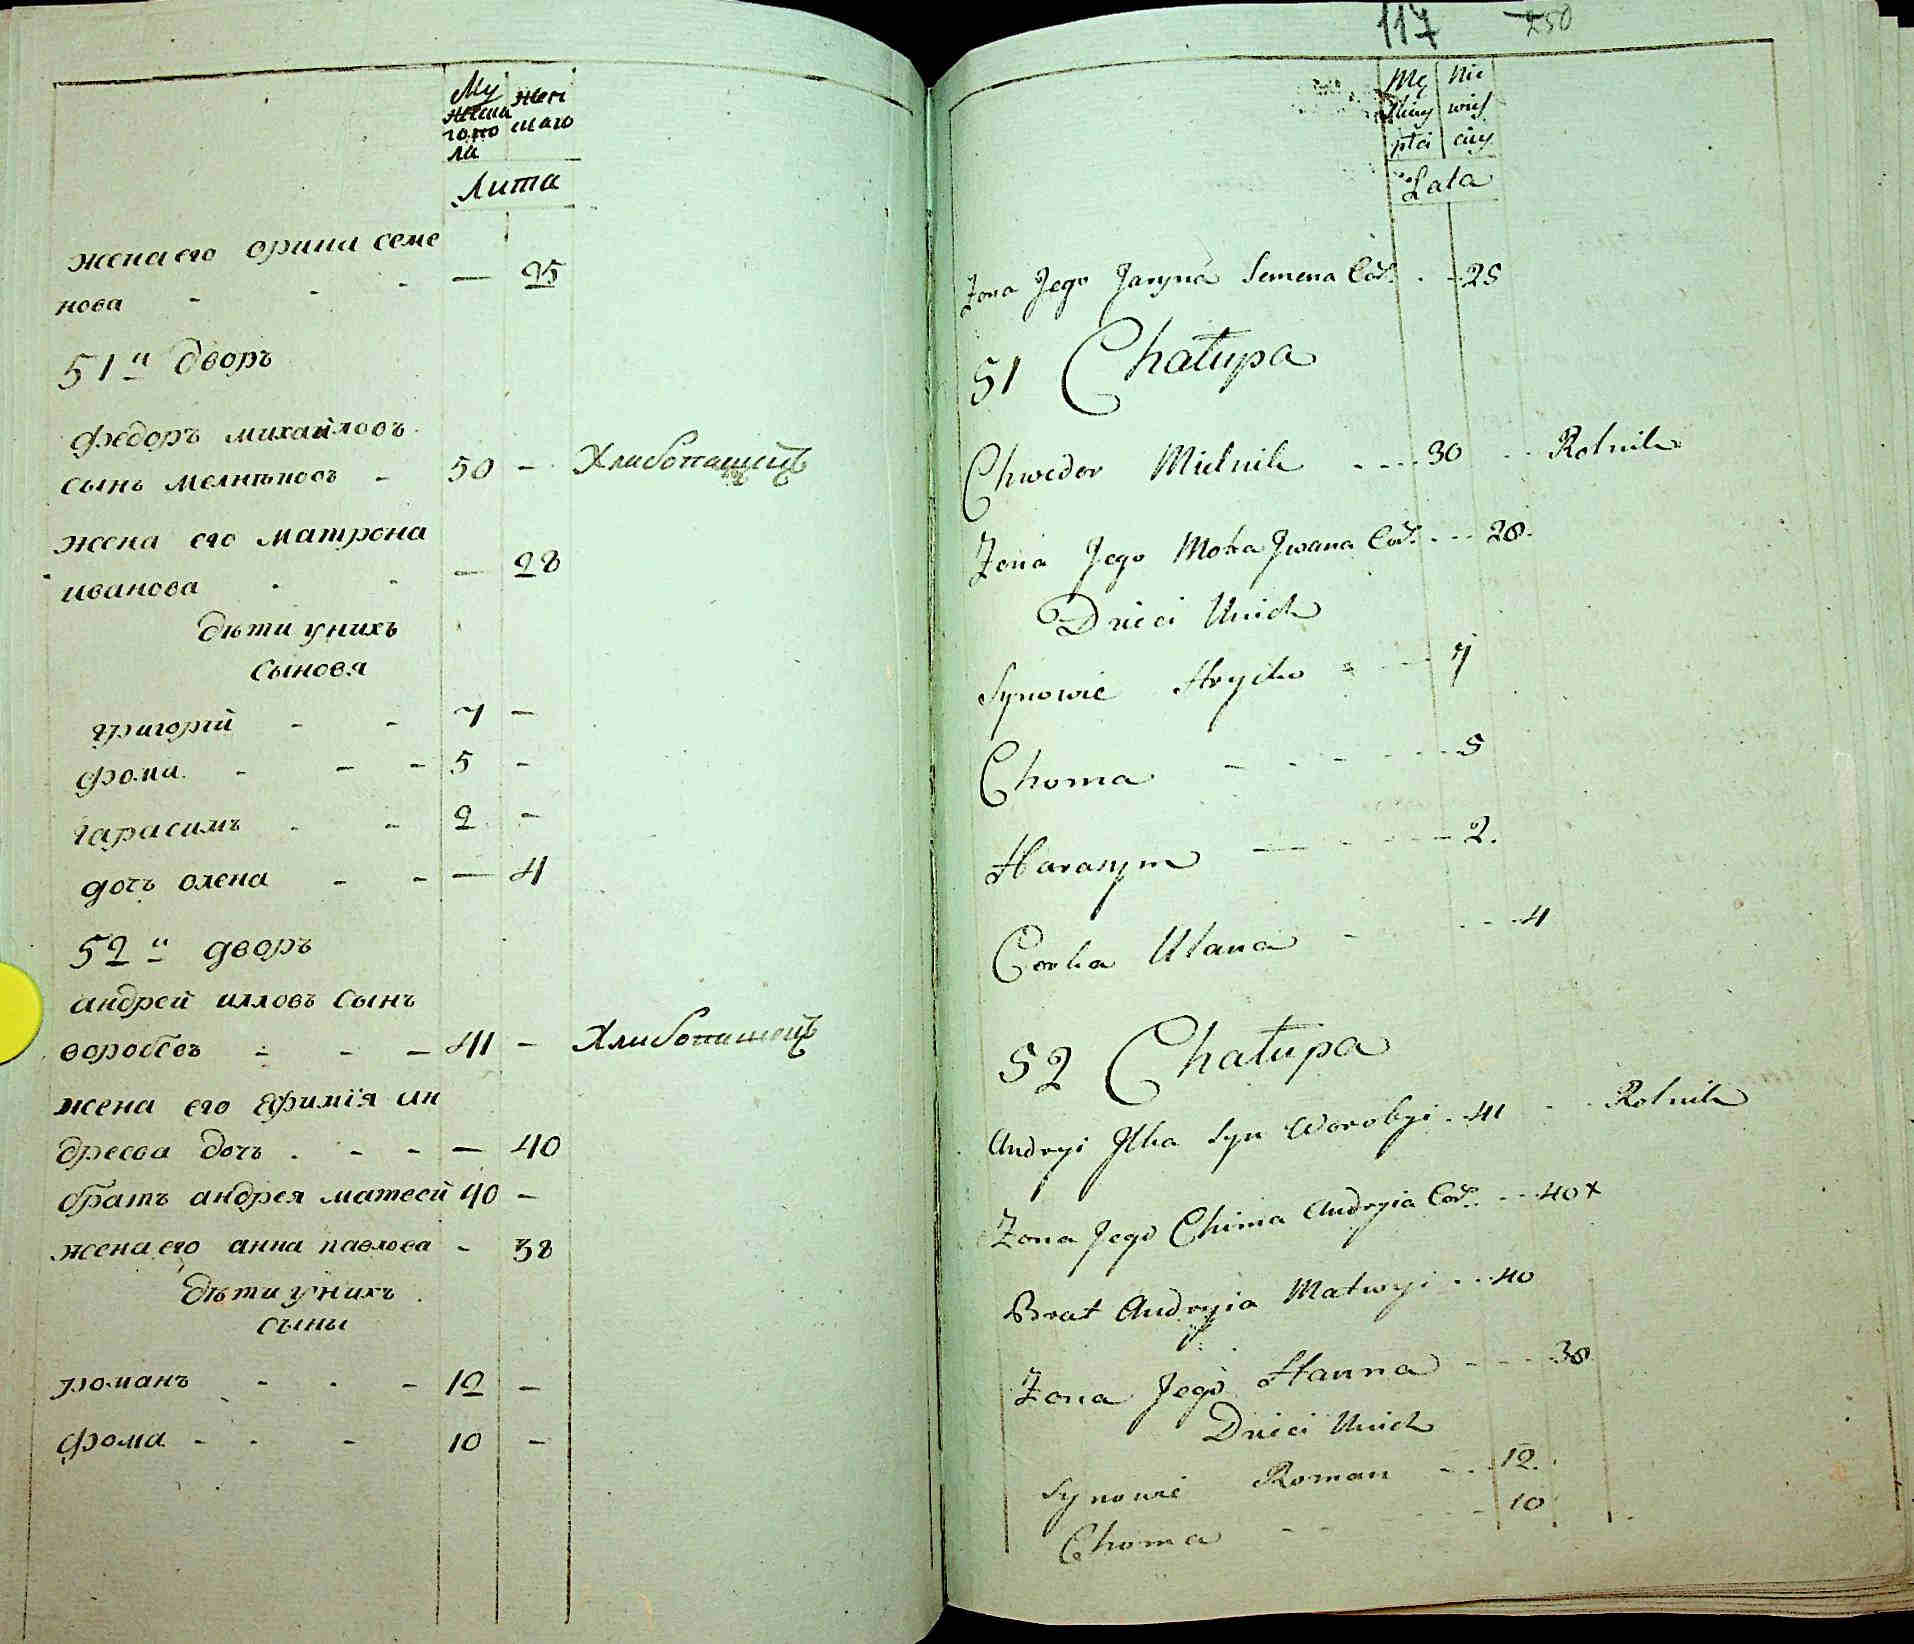 Му
жеска
го по
ла
женс
каго
Лита
жена его орина семе
нова - - - — 25
51й дворъ
федоръ михайловъ
сынъ мелниковъ - 50 - Хлибопашецъ
жена его матрона
иванова - - — 28
дѣти у нихъ
сыновя
григорій - - 7 —
фома - - - 5 -
гарасимъ - - 2 -
дочь олена - - — 4
52й дворъ
андрей илловъ сынъ
воробевъ - - - 41 - Хлибопашецъ
жена его Афимія ан
дреева дочь - - - — 40
братъ андрея матвей 40 -
жена его анна павлова - 38
дѣти у нихъ
сыны
романъ - - - 12 -
фома - - - 10 -
117 250
Mę
skiey
płci
Nie
wieś
ciey
Lata
Zona Jego Jaryna Semena Cór. - - 25
51 Chałupa
Chwedor Mielnik - - - 30 - - Rolnik
Zona Jego Motra Jwana Cór. - - - 28.
Dzieci Unich
Synowie Hryćko - - - 7
Choma - - - - - 5
Harasym - - - - 2.
Corka Ulana - - - 4
52 Chałupa
Andryi Jlka Syn Worobyi - 41 - - Rolnik
Zona Jego Chima Andryia Cór. - - 40 x
Brat Andryia Matwyi - - 40
Zona Jego Hanna - - - 38
Dzieci Unich
Synowie Roman - - 12.
Choma - - - - 10